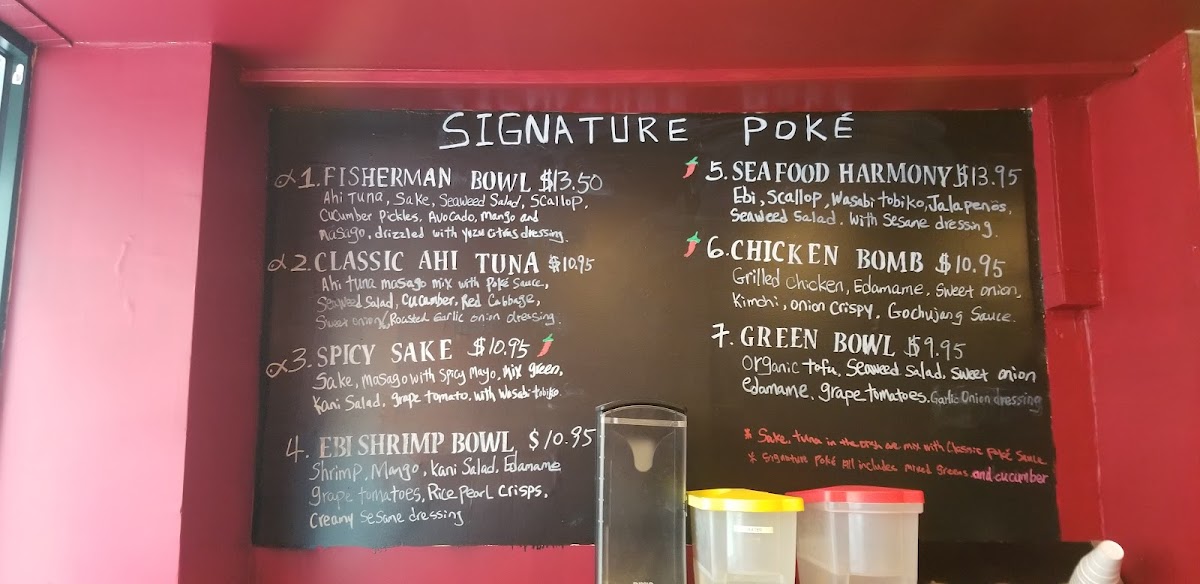 SIGNATURE POKÉ
α1. FISHERMAN BOWL $13.50
Ahi Tuna, Sake, Seaweed Salad, Scallop,
Cucumber Pickles, Avocado, Mango and
Masago, drizzled with Yuzu Citrus dressing.
α2. CLASSIC AHI TUNA $10.95
Ahi tuna masago mix with Poké Sauce,
Seaweed Salad, Cucumber, Red Cabbage,
Sweet onion, Roasted Garlic onion dressing.
α3. SPICY SAKE $10.95
Sake, Masago with Spicy Mayo, Mix green,
Kani Salad, grape tomato, with Wasabi tobiko.
4. EBI SHRIMP BOWL $10.95
Shrimp, Mango, Kani Salad, Edamame
grape tomatoes, Rice Pearl Crisps,
Creamy Sesame dressing
5. SEAFOOD HARMONY $13.95
Ebi, Scallop, Wasabi tobiko, Jalapeños,
Seaweed Salad. With Sesane dressing.
6. CHICKEN BOMB $10.95
Grilled Chicken, Edamame, Sweet onion,
Kimchi, onion Crispy, Gochujang Sauce.
7. GREEN BOWL $9.95
Organic tofu, Seaweed Salad, Sweet onion
edamame, grape tomatoes. Garlic Onion dressing
* Sake, tuna in the dish are mix with Classic Poké Sauce
* Signature Poké All includes mixed greens and cucumber